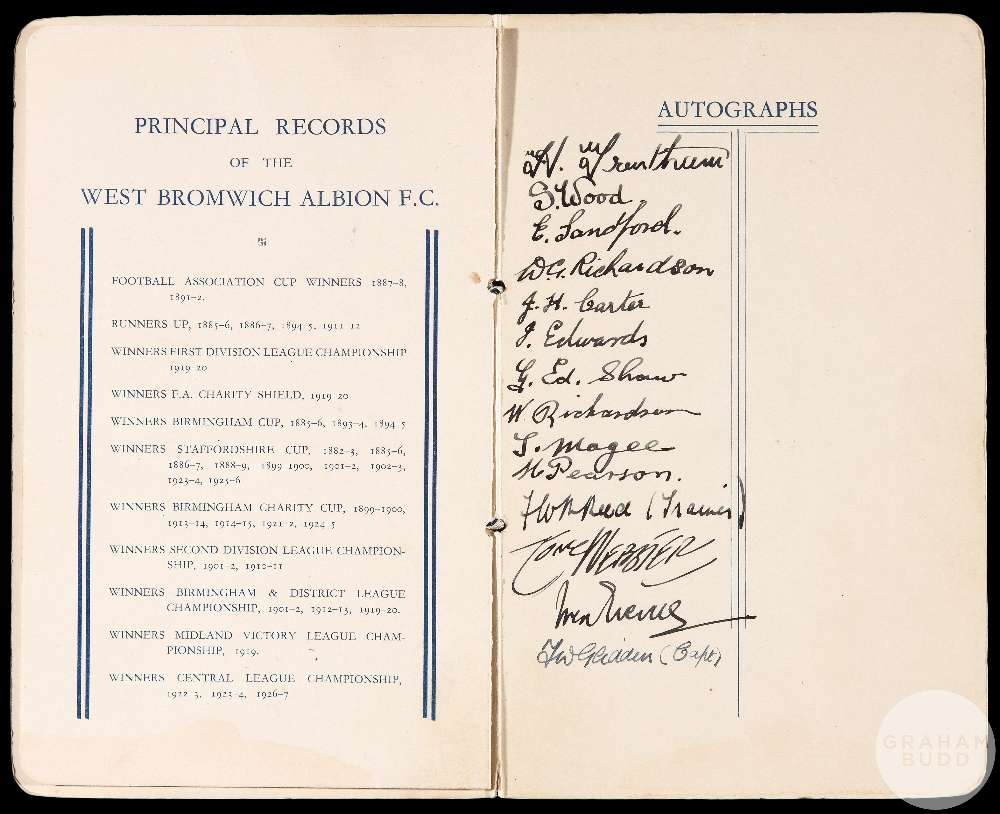 PRINCIPAL RECORDS
OF THE
WEST BROMWICH ALBION F.C.
FOOTBALL ASSOCIATION CUP WINNERS 1887–8,
1891–2.
RUNNERS UP, 1885–6, 1886–7, 1894–5, 1911–12
WINNERS FIRST DIVISION LEAGUE CHAMPIONSHIP
1919–20
WINNERS F.A. CHARITY SHIELD, 1919–20
WINNERS BIRMINGHAM CUP, 1885–6, 1893–4, 1894–5
WINNERS STAFFORDSHIRE CUP, 1882–3, 1885–6,
1886–7, 1888–9, 1899–1900, 1901–2, 1902–3,
1923–4, 1925–6
WINNERS BIRMINGHAM CHARITY CUP, 1899–1900,
1913–14, 1914–15, 1921–2, 1924–5
WINNERS SECOND DIVISION LEAGUE CHAMPION-
SHIP, 1901–2, 1910–11
WINNERS BIRMINGHAM & DISTRICT LEAGUE
CHAMPIONSHIP, 1901–2, 1912–13, 1919–20.
WINNERS MIDLAND VICTORY LEAGUE CHAM-
PIONSHIP, 1919.
WINNERS CENTRAL LEAGUE CHAMPIONSHIP,
1922–3, 1923–4, 1926–7
AUTOGRAPHS
S. Wood
E. Sandford.
W.G. Richardson
J. H. Carter
J. Edwards
G. Ed. Shaw
W Richardson
T. Magee
H Pearson.
Reed (Trainer)
WEBSTER
Glidden (Capt)
GRAHAM
BUDD